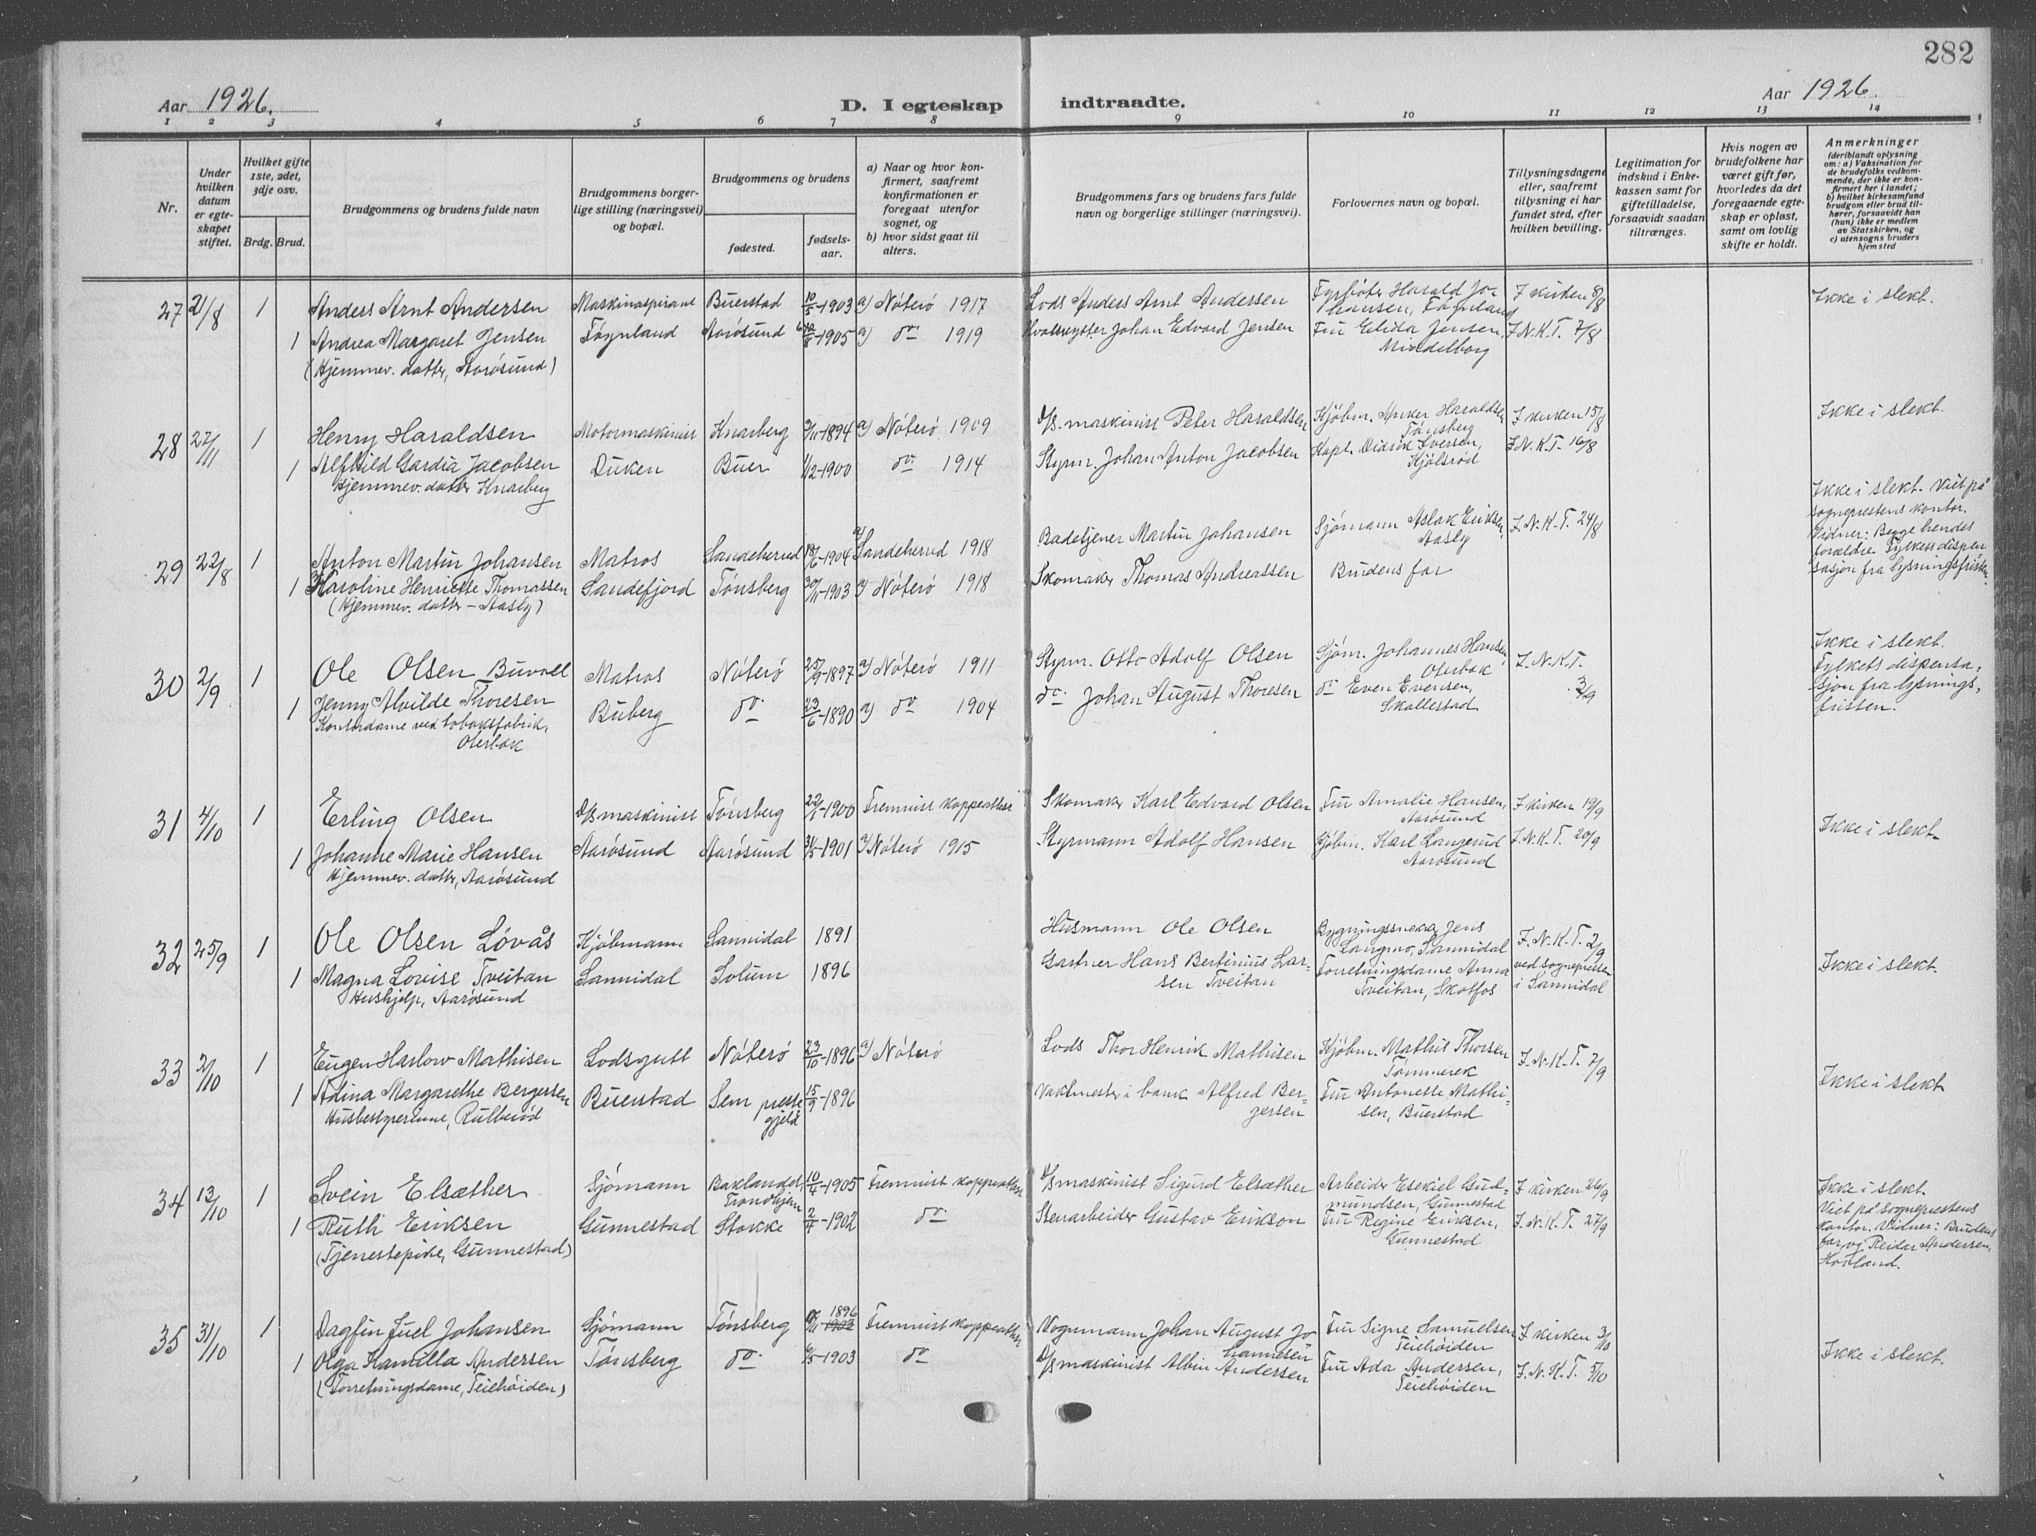 282
Aar 1926.
D. I egteskap indtraadte.
Aar 1926.
1 2 3 4 5 6 7 8 9 10 11 12 13 14
Nr.
Under hvilken datum er egteskapet stiftet.
Hvilket gifte 1ste, 2det, 3dje osv.
Brdg. Brud.
Brudgommens og brudens fulde navn
Brudgommens borgerlige stilling (næringsvei) og bopæl.
Brudgommens og brudens
fødested.
fødselsaar.
a) Naar og hvor konfirmert, saafremt konfirmationen er foregaat utenfor sognet, og
b) hvor sidst gaat til alters.
Brudgommens fars og brudens fars fulde navn og borgerlige stillinger (næringsvei).
Forlovernes navn og bopæl.
Tillysningsdagene eller, saafremt tillysning ei har fundet sted, efter hvilken bevilling.
Legitimation for indskud i Enkekassen samt for giftetilladelse, forsaavidt saadan tiltrænges.
Hvis nogen av brudefolkene har været gift før, hvorledes da det foregaaende egteskap er opløst, samt om lovlig skifte er holdt.
Anmerkninger
(deriblandt oplysning om: a) Vaksination for de brudefolks vedkommende, der ikke er konfirmert her i landet; b) hvilket kirkesamfund brudgom eller brud tilhører, forsaavidt han (hun) ikke er medlem av Statskirken, og c) utensogns bruders hjemsted
27 21/8 1 Anders Arnt Andersen Maskinaspirant Buerstad 10/5-1903 a) Nøterø 1917 Lods Anders Arnt Andersen Fyrbøter Harald Johansen, Føynland I kirken 8/8 Ikke i slekt.
1 Andrea Margaret Jensen Føynland Aarøsund 1905 a) do 1919 Hvalskytter Johan Edvard Jensen Fru Elida Jensen, Mindelborg I. N. K. T. 7/8
(Hjemmev. datter, Aarøsund)
28 27/11 1 Henry Haraldsen Motormaskinist Knarberg 1894 a) Nøterø 1909 D/S. maskinist Peter Haraldsen Kjøbm. Anker Haraldsen Tønsberg I kirken 15/8 Ikke i slekt.
1 Alfhild Gardia Jacobsen Duken Buer 1/12-1900 do. 1914 Styrm. Johan Anton Jacobsen Kapt. Didrik Iversen, Kjølsrød I. N. K. T. 16/8
Hjemmev. datter Knarberg
29 22/8 1 Anton Martin Johansen Matros Sandeherred 18/6-1904 a) Sandeherred 1918 Badetjener Martin Johansen Sjømann Aslak Eriksen, Aasly I. N. K. T. 24/8 Ikke i slekt. Viet på sogneprestens kontor. Vidner: Begge hendes forældre. Fylkets dispensasjon fra lysningsfristen
1 Karoline Henriette Thomassen Sandefjord Tønsberg 30/11-1903 a) Nøterø 1918 Skomaker Thomas Andreassen Brudens far
(Hjemmev. datter - Aasly)
30 2/9 1 Ole Olsen Buvoll Matros Nøterø 25/9-1897 a) Nøterø 1911 Styrm. Otto Adolf Olsen Sjøm. Johannes Hansen, Oterbæk I. N. K. T. 3/9 Ikke i slekt. Fylkets dispensasjon fra lysningsfristen.
1 Jenny Alvilde Thoresen Buberg do. 23/6-1890 a) do 1904 do. Johan August Thoresen do Even Evensen, Skallestad
Kontordame ved tobaksfabrik, Oterbæk
31 4/10 1 Erling Olsen D/S maskinist Tønsberg 22/1-1900 Fremvist koppeattest Skomaker Karl Edvard Olsen Fru Amalie Hansen, Aarøsund I kirken 19/9 Ikke i slekt.
1 Johanne Marie Hansen Aarøsund Aarøsund 31/5-1901 a) Nøterø 1915 Styrmann Adolf Hansen Kjøbm. Karl Langerud Aarøsund I. N. K. T. 20/9
Hjemmev. datter, Aarøsund
32 25/9 1 Ole Olsen Løvås Kjøbmann Sannidal 1891 Husmann Ole Olsen Bygningssnekk. Jens Langmo, Sannidal I. N. K. T. 2/9 ved sognepresten i Sannidal Ikke i slekt.
1 Magna Lovise Tveitan Sannidal Solum 1896 Gartner Hans Bertinius Larsen Tveitan Forretningsdame Anna Tveitan, Skotfos
Hushjelp, Aarøsund
33 2/10 1 Eugen Harlow Mathisen Lodsgutt Nøterø 23/10-1896 a) Nøterø Lods Thor Henrik Mathisen Kjøbm. Mathis Thorsen Tømmerek I. N. K. T. 7/9 Ikke i slekt
1 Adina Margarethe Bergersen Buerstad Sem prestegjeld 15/9-1896 Vaktmester i bank Alfred Bergersen Fru Antonette Mathisen, Buerstad
Husbestyrerinne, Rulberød
34 13/10 1 Svein Elsæther Sjømann Baklandet, Trondhjem 10/4-1905 Fremvist koppeattest D/S maskinist Sigurd Elsæther Arbeider Esekiel Gudmundsen, Gunnestad I kirken 26/9 Ikke i slekt. Viet på sogneprestens kontor. Vidner: Brudens far og Reidar Andersen, Hovland.
1 Ruth Eriksen Gunnestad Stokke 2/4-1902 do. Stenarbeider Gustav Erikson Fru Regine Eriksen, Gunnestad I. N. K. T. 27/9
(Tjenestepike, Gunnestad)
35 31/10 1 Dagfin Juel Johansen Sjømann Tønsberg 1896 Fremvist koppeattest Vognmann Johan August Johannesen Fru Signe Samuelsen Teiehøiden I kirken 3/10 Ikke i slekt.
1 Olga Kamilla Andersen Tønsberg do. 1903 do D/S maskinist Albin Andersen Fru Ada Andersen, Teiehøiden I. N. K. T. 5/10
(Forretningsdame, Teiehøiden)